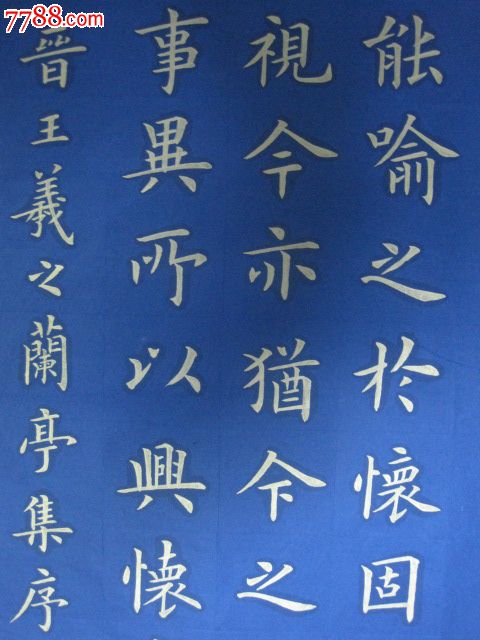 7788.com
能喻之於懷固
視今亦猶今之
事異所以興懷
晉王羲之蘭亭集序